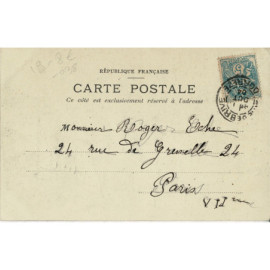 RÉPUBLIQUE FRANÇAISE
CARTE POSTALE
Ce côté est exclusivement réservé à l'adresse
Monsieur Roger Eche
24 rue de Grenelle 24
Paris
VII me